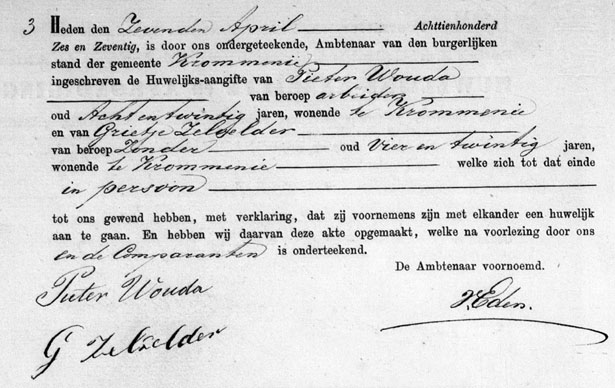 3 Heden den Zevenden April Achttienhonderd
Zes en Zeventig, is door ons ondergeteekende, Ambtenaar van den burgerlijken
stand der gemeente Krommenie
ingeschreven de Huwelijks-aangifte van Pieter Wouda
van beroep arbeider
oud Acht en twintig jaren, wonende te Krommenie
en van Grietje Zelfelder
van beroep Zonder oud Vier en twintig jaren,
wonende te Krommenie welke zich tot dat einde
in persoon
tot ons gewend hebben, met verklaring, dat zij voornemens zijn met elkander een huwelijk
aan te gaan. En hebben wij daarvan deze akte opgemaakt, welke na voorlezing door ons
en de Comparanten is onderteekend.
De Ambtenaar voornoemd.
Pieter Wouda
Eden.
G